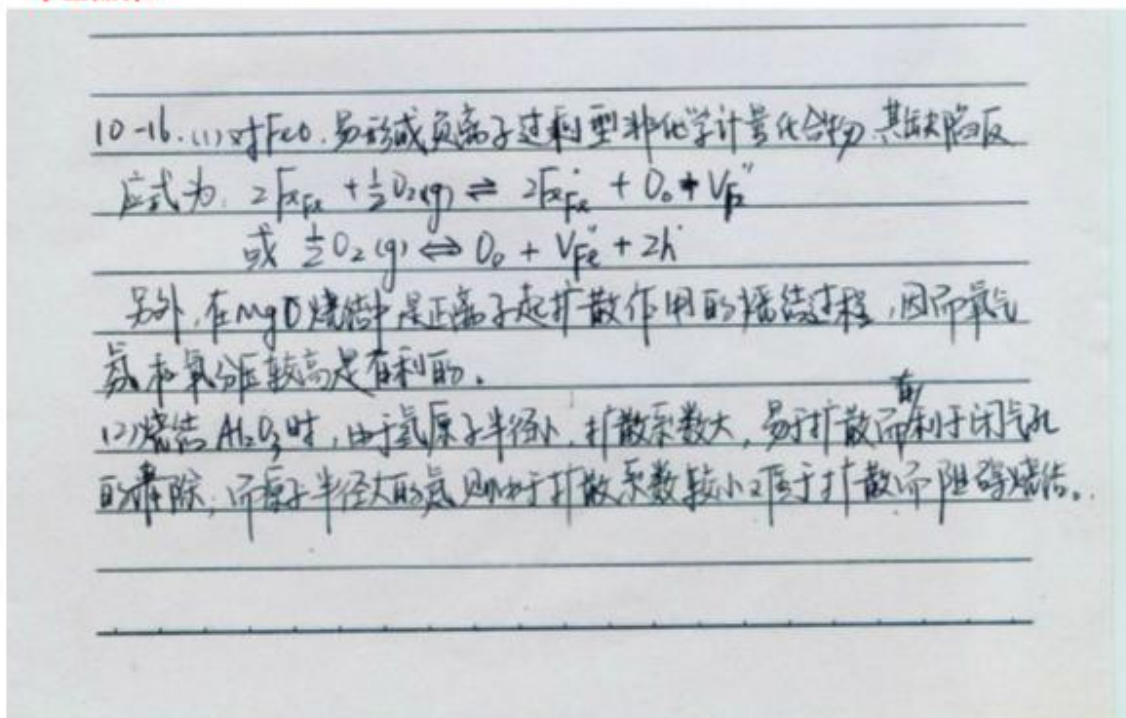 10-16.(1)对FeO.易形成负离子过剩型非化学计量化合物.其缺陷反
应式为: 2Fe_Fe + ½O₂(g) ⇌ 2Fe_Fe˙ + O₀ + V_Fe''
或 ½O₂(g) ⇔ O₀ + V_Fe'' + 2h˙
另外,在MgO烧结中是正离子起扩散作用的烧结过程,因而氧气
氛和氧分压较高是有利的。
(2)烧结Al₂O₃时,由于氢原子半径小,扩散系数大,易于扩散而有利于闭气孔
的清除;而原子半径大的氮则由于扩散系数较小不适于扩散而阻碍烧结。